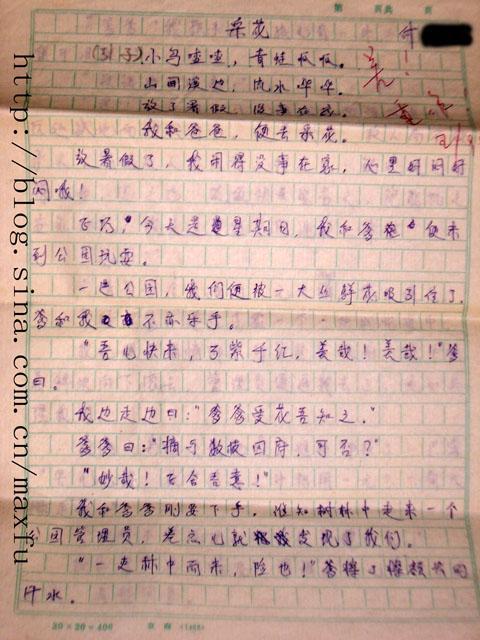 第 页共 页
采花
(引子)小鸟喳喳，青蛙呱呱。
山间溪边，流水华华。
放了暑假，没事在家。
我和爸爸，便去采花。
放暑假了，我闲得没事在家，心里好闷好
闷哦！
正巧，今天是星期日，我和爹爹便来
到公园玩耍。
一进公园，我们便被一大丛鲜花吸引住了，
爹和我不亦乐乎。
"吾儿快来，万紫千红，美哉！美哉！"爹
曰。
我边走边曰："爹爹爱花吾知之。"
爹爹曰："摘与数枝回府，可否？"
"妙哉！正合吾意！"
我和爹爹刚要下手，谁知树林中走来一个
公园管理员，差点儿就发现了我们。
"一走林中而来，险也！"爹擦了擦额头的
汗水。
20×20=400
http://blog.sina.com.cn/maxfu